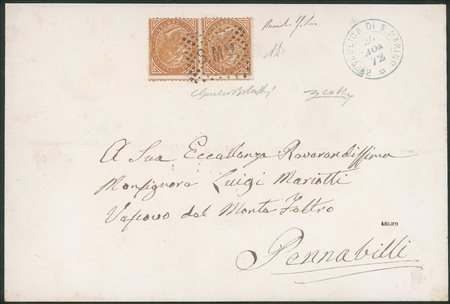 REPUBBLICA DI S. MARINO
NOV
72
S. Mno
A Sua Eccellenza Reverendissima
Monsignore Luigi Mariotti
Vescovo del Monte Feltro
Pennabilli